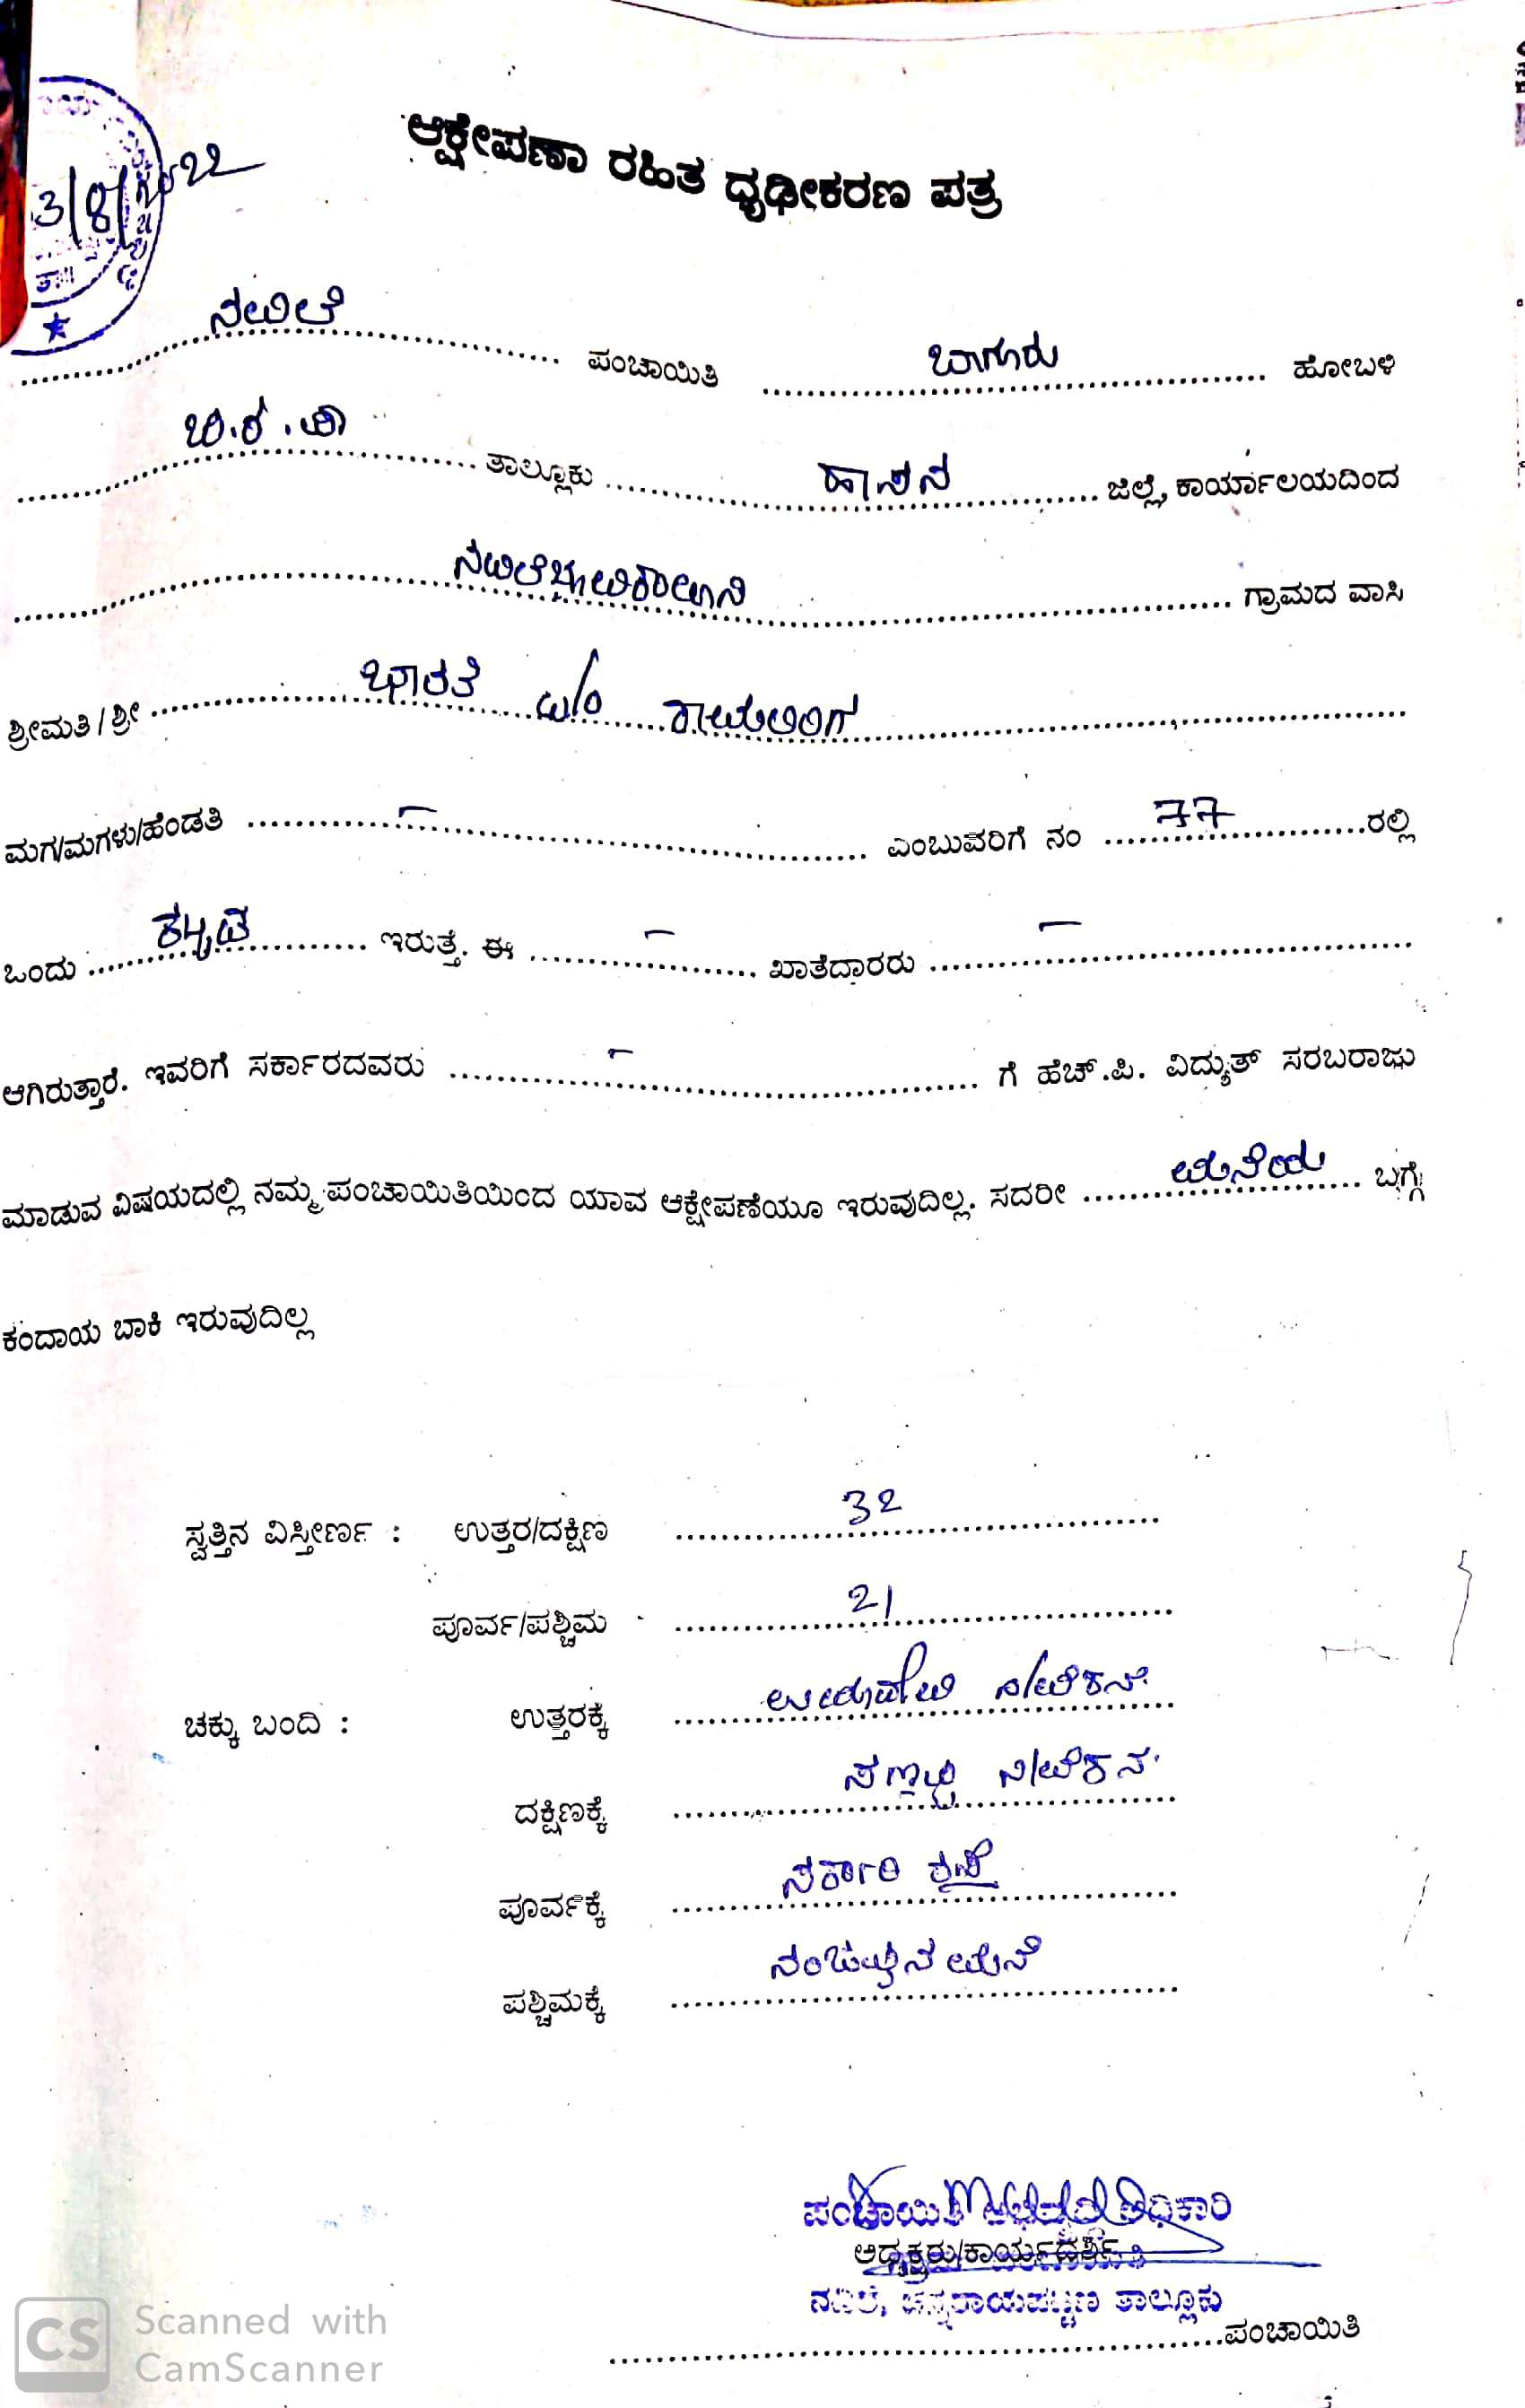 3/8/2022
ಆಕ್ಷೇಪಣಾ ರಹಿತ ಧೃಢೀಕರಣ ಪತ್ರ
ನವಿಲೆ ಪಂಚಾಯಿತಿ ಬಾಗೂರು ಹೋಬಳಿ
ಚ.ರ.ಪ ತಾಲ್ಲೂಕು ಹಾಸನ ಜಿಲ್ಲೆ, ಕಾರ್ಯಾಲಯದಿಂದ
ಗ್ರಾಮದ ವಾಸಿ
ಶ್ರೀಮತಿ/ಶ್ರೀ ಭಾರತಿ
ಮಗ/ಮಗಳು/ಹೆಂಡತಿ – ಎಂಬುವರಿಗೆ ನಂ 77 ರಲ್ಲಿ
ಒಂದು ಕಟ್ಟಡ ಇರುತ್ತೆ. ಈ – ಖಾತೆದಾರರು –
ಆಗಿರುತ್ತಾರೆ. ಇವರಿಗೆ ಸರ್ಕಾರದವರು – ಗೆ ಹೆಚ್.ಪಿ. ವಿದ್ಯುತ್ ಸರಬರಾಜು
ಮಾಡುವ ವಿಷಯದಲ್ಲಿ ನಮ್ಮ ಪಂಚಾಯಿತಿಯಿಂದ ಯಾವ ಆಕ್ಷೇಪಣೆಯೂ ಇರುವುದಿಲ್ಲ. ಸದರೀ ಮನೆಯ ಬಗ್ಗೆ
ಕಂದಾಯ ಬಾಕಿ ಇರುವುದಿಲ್ಲ
ಸ್ವತ್ತಿನ ವಿಸ್ತೀರ್ಣ : ಉತ್ತರ/ದಕ್ಷಿಣ 32
ಪೂರ್ವ/ಪಶ್ಚಿಮ 21
ಚಕ್ಕು ಬಂದಿ : ಉತ್ತರಕ್ಕೆ
ದಕ್ಷಿಣಕ್ಕೆ
ಪೂರ್ವಕ್ಕೆ ಸರ್ಕಾರಿ ರಸ್ತೆ
ಪಶ್ಚಿಮಕ್ಕೆ ಮನೆ
ಪಂಚಾಯಿತಿ ಅಭಿವೃದ್ಧಿ ಅಧಿಕಾರಿ
ಅಧ್ಯಕ್ಷರು/ಕಾರ್ಯದರ್ಶಿ
ನವಿಲೆ, ಚನ್ನರಾಯಪಟ್ಟಣ ತಾಲ್ಲೂಕು
ಪಂಚಾಯಿತಿ
CS Scanned with
CamScanner